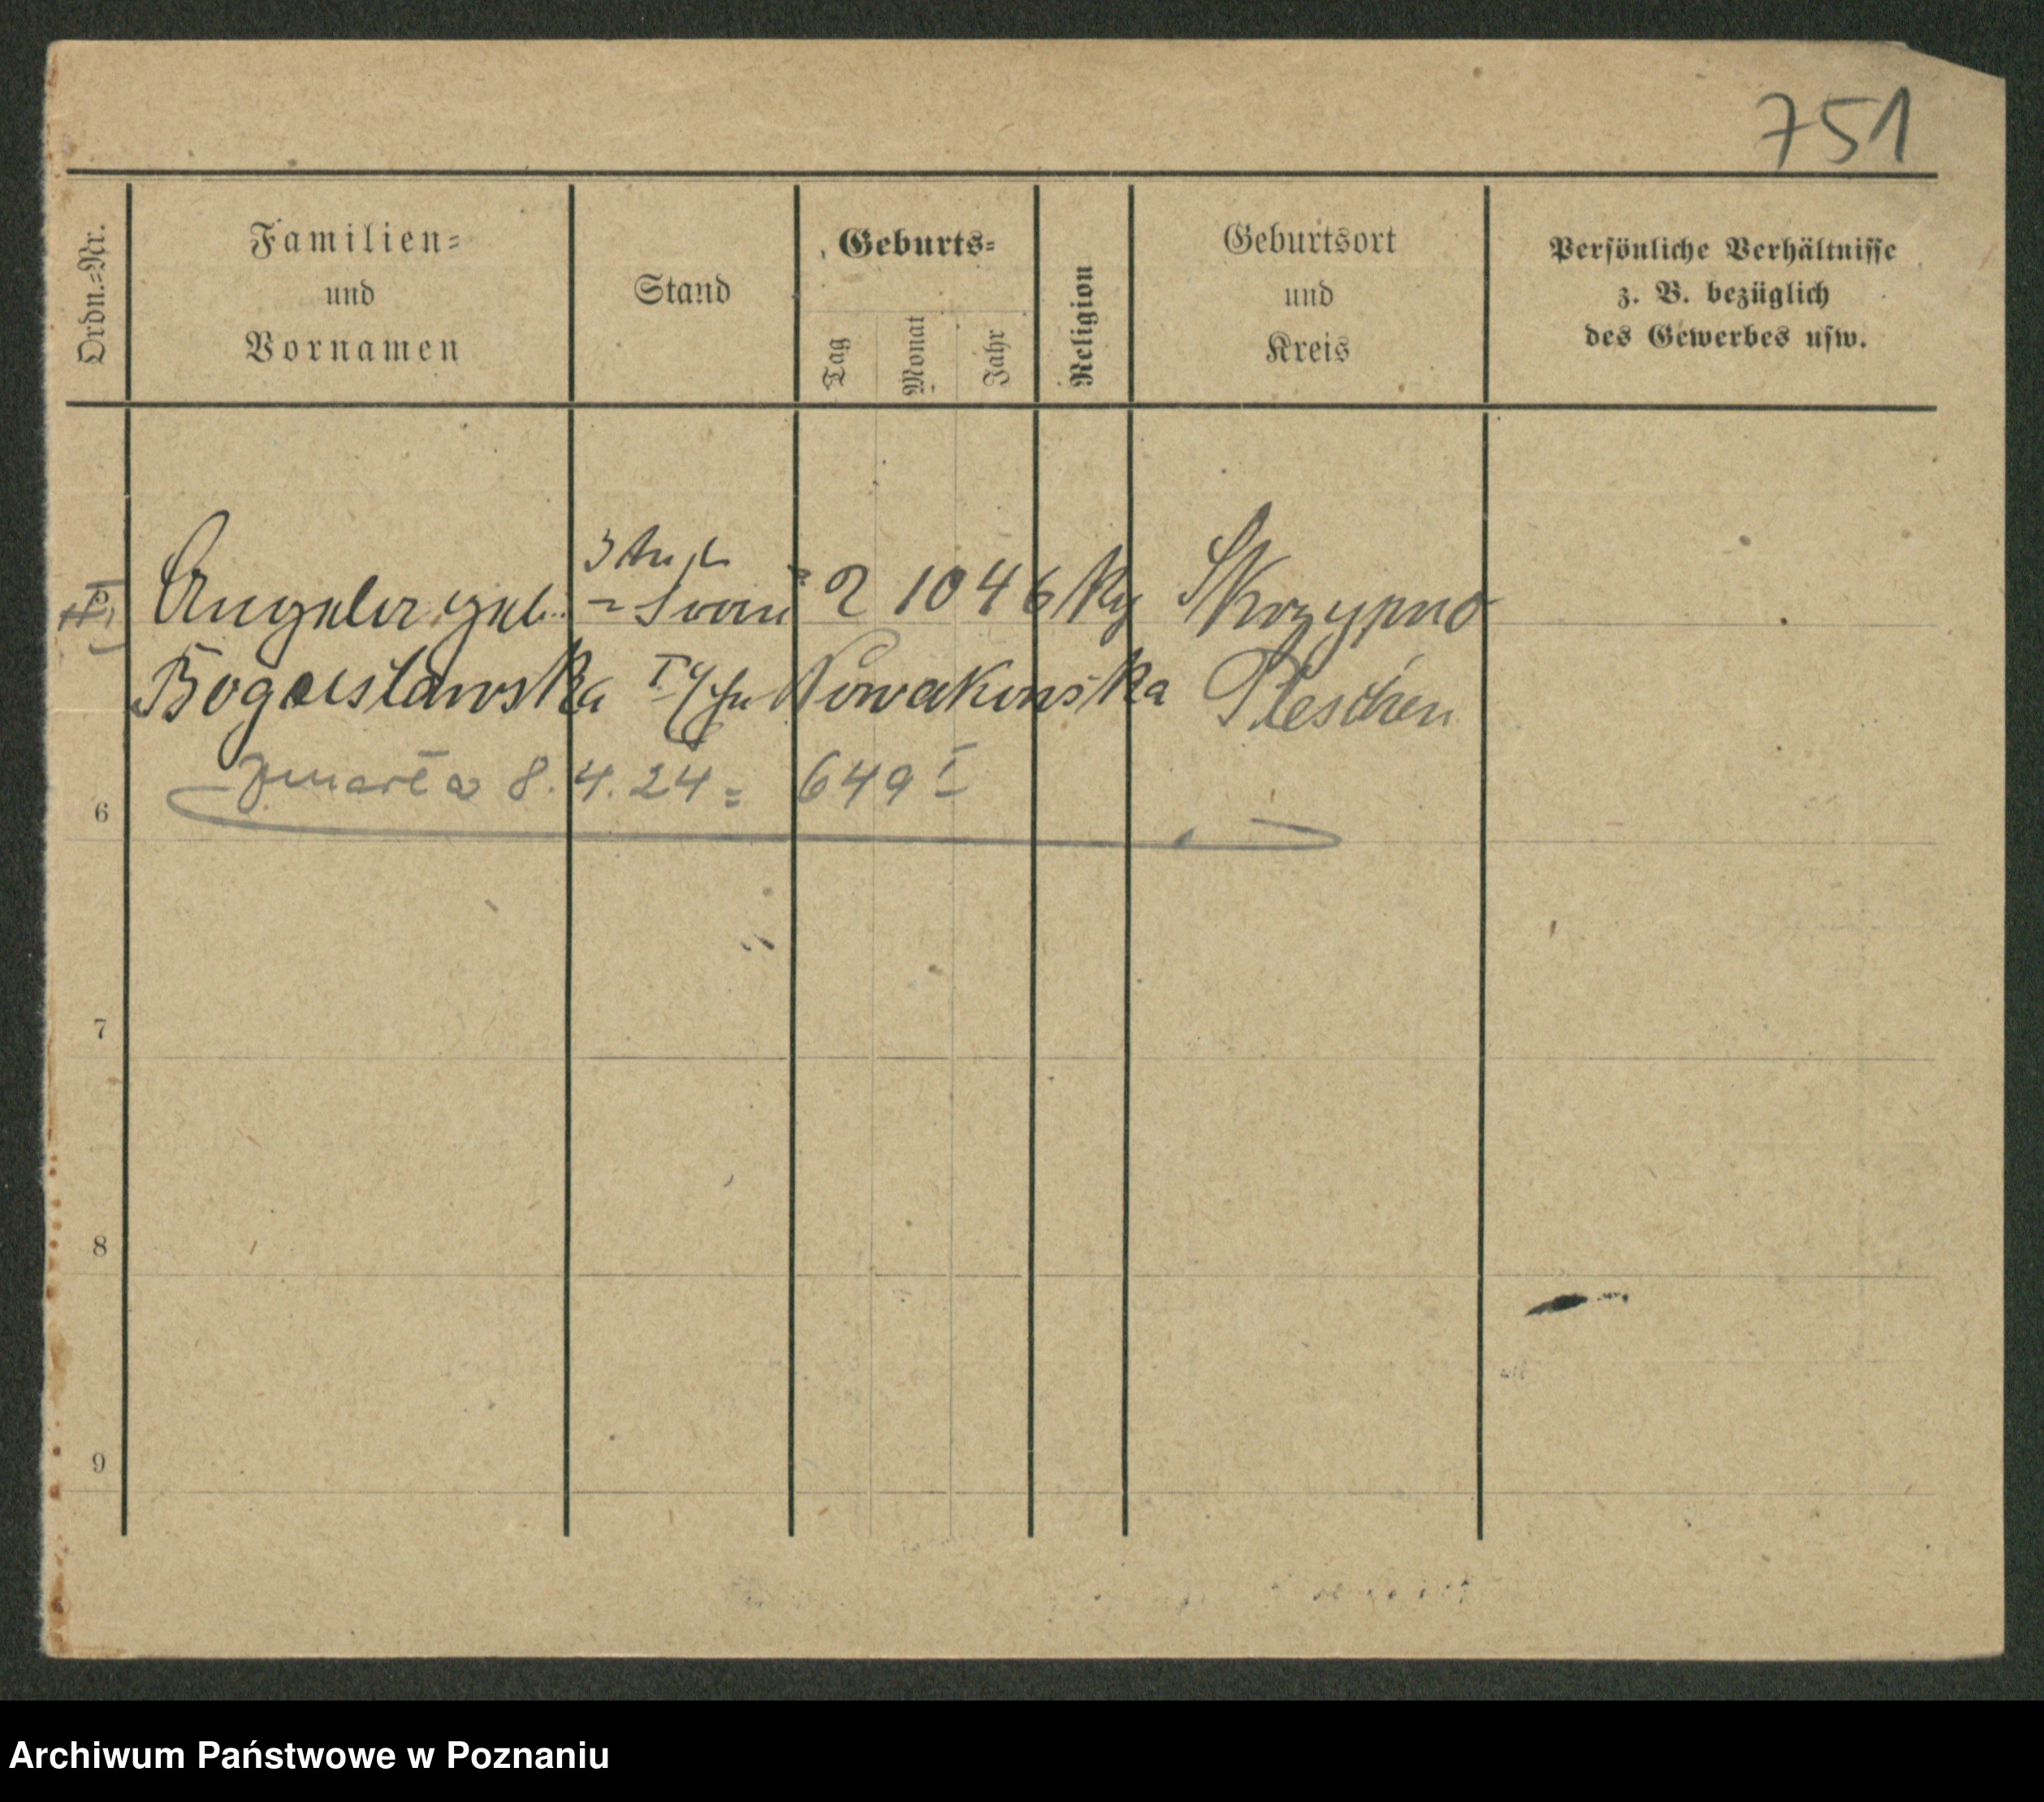 751
Ordn.-Nr.
Familien-
und
Vornamen
Stand
Geburts-
Tag
Monat
Jahr
Religion
Geburtsort
und
Kreis
Persönliche Verhältnisse
z. B. bezüglich
des Gewerbes usw.
Angela geb. 2 10 46 Skrzypno
Boguslawska Nowakowska Pleschen
zmarła 8.4.24 = 649 I
6
7
8
9
Archiwum Państwowe w Poznaniu